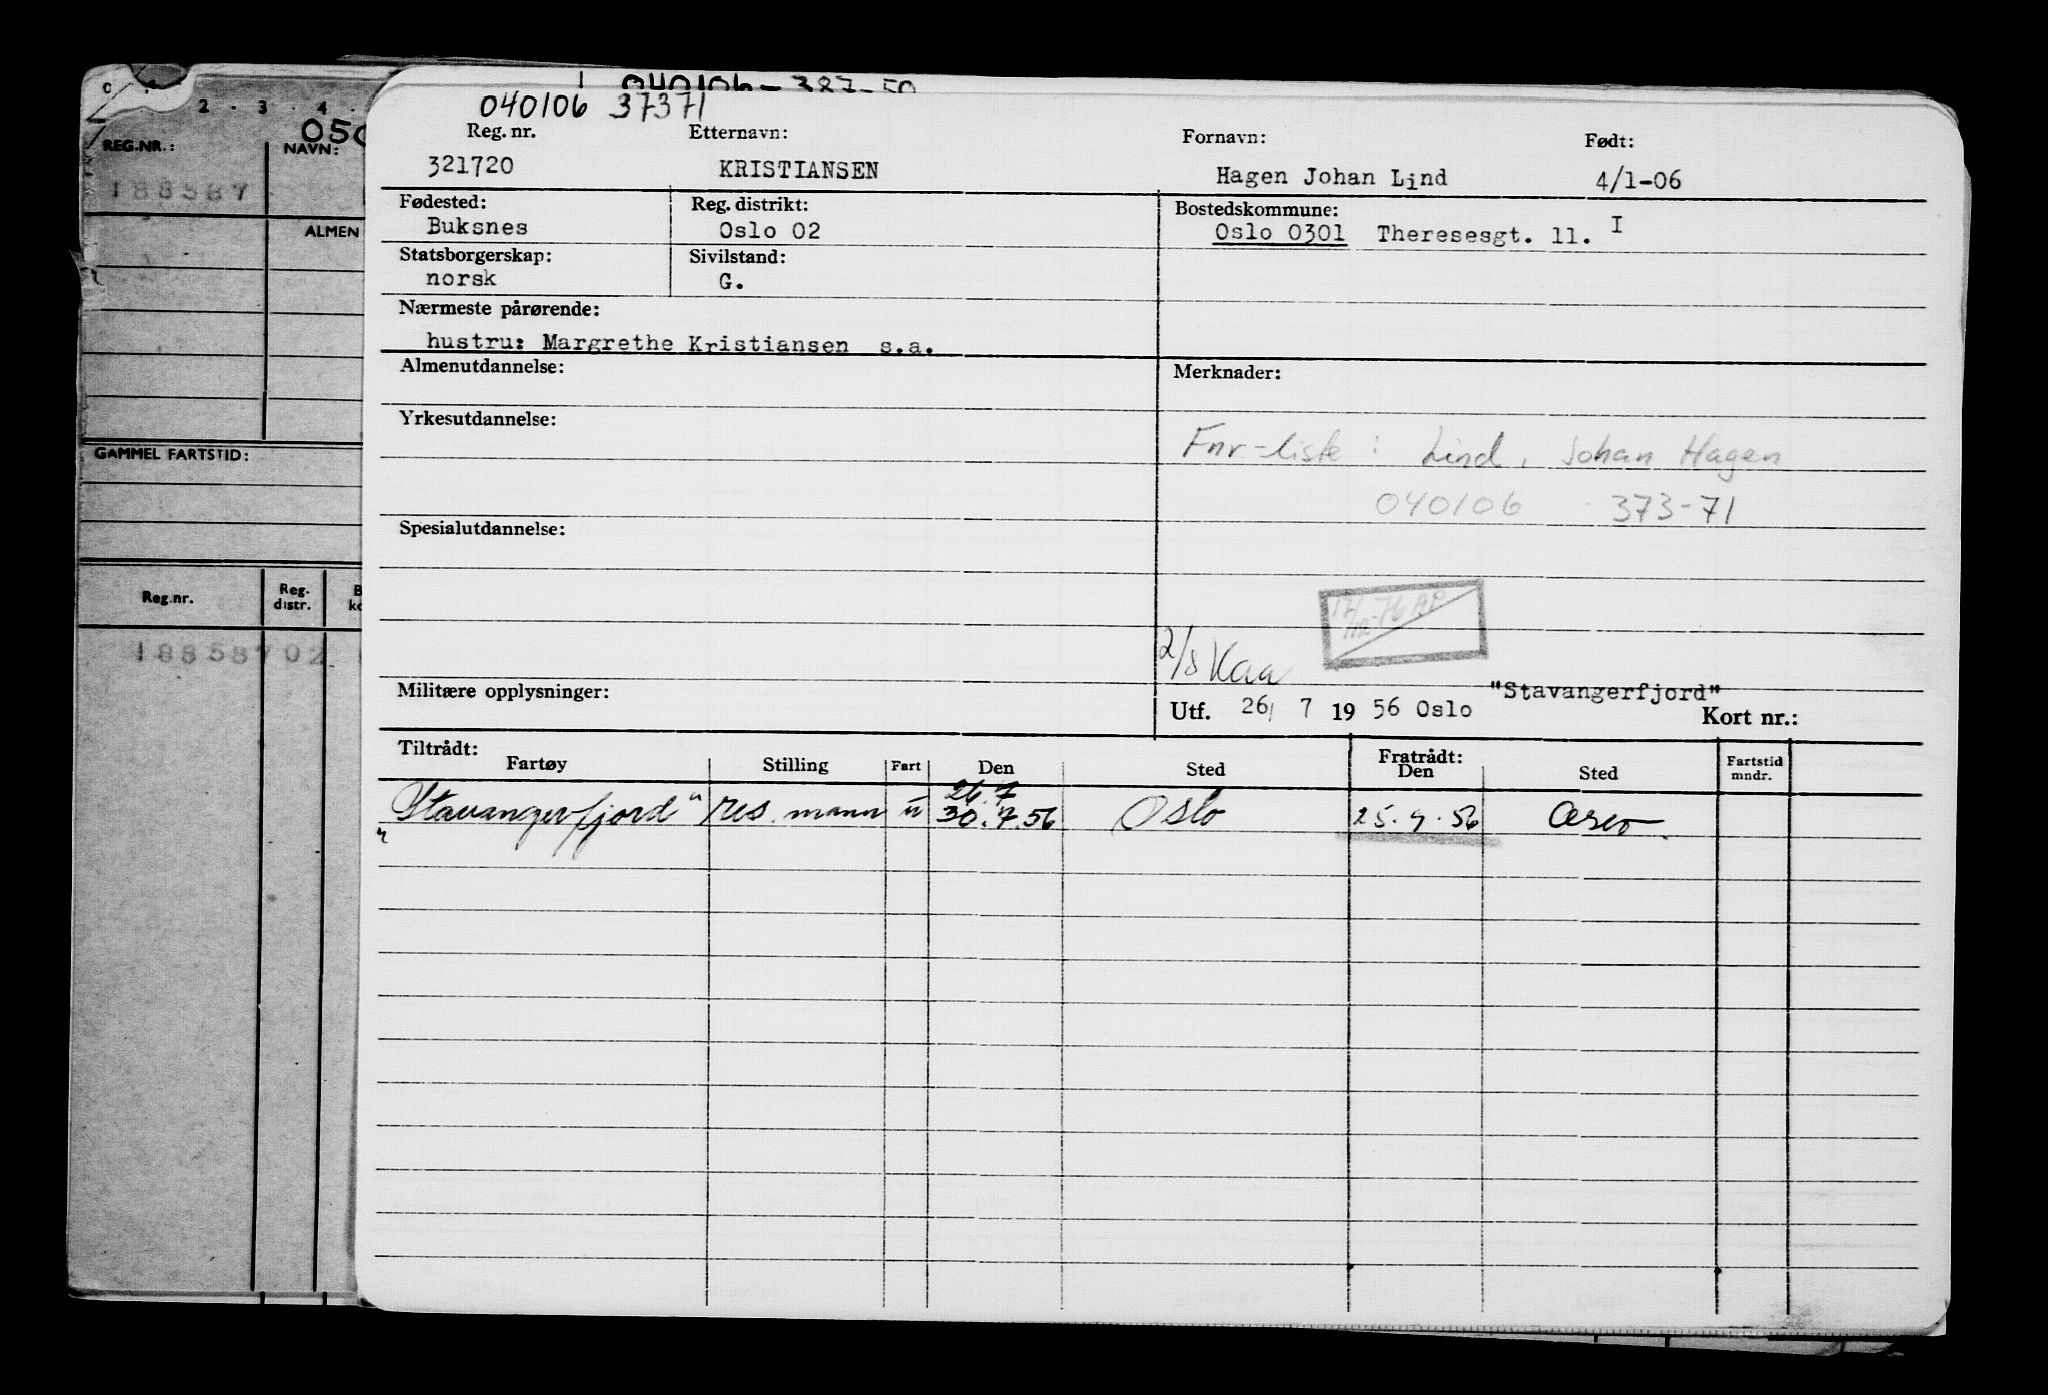 040106-387-50
040106 37371
Reg. nr. Etternavn: Fornavn: Født:
321720 KRISTIANSEN Hagen Johan Lind 4/1-06
Fødested: Reg. distrikt: Bostedskommune:
Buksnes Oslo 02 Oslo 0301 Theresesgt. 11. I
Statsborgerskap: Sivilstand:
norsk G.
Nærmeste pårørende:
hustru: Margrethe Kristiansen s.a.
Almenutdannelse: Merknader:
Yrkesutdannelse:
Fnr-liste : Lind, Johan Hagen
040106 373-71
Spesialutdannelse:
17/12-76 AP
2/8 Kaa
Militære opplysninger:
"Stavangerfjord"
Utf. 26/ 7 1956 Oslo Kort nr.:
Tiltrådt: Fratrådt:
Fartøy Stilling Fart Den Sted Den Sted Fartstid mndr.
26.7
"Stavangerfjord" res. mann u 30.7.56 Oslo 25.9.56 Oslo
C
2 . 3 . 4 .
050
REG.NR.: NAVN:
188587
ALMEN
GAMMEL FARTSTID:
Reg.nr. Reg. distr. B ko
188587 02